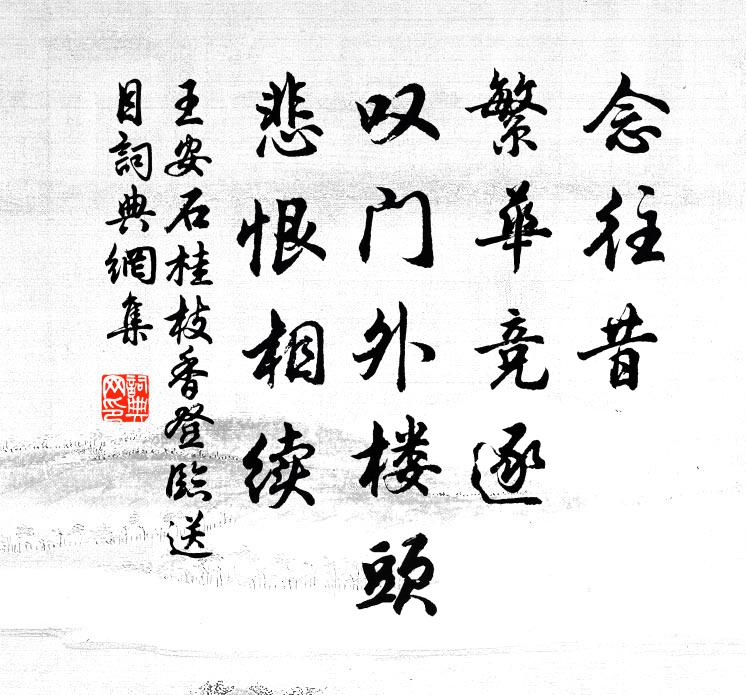 念往昔
繁華竞逐
叹门外楼頭
悲恨相续
王安石桂枝香登臨送
目詞典網集
詞典
网印